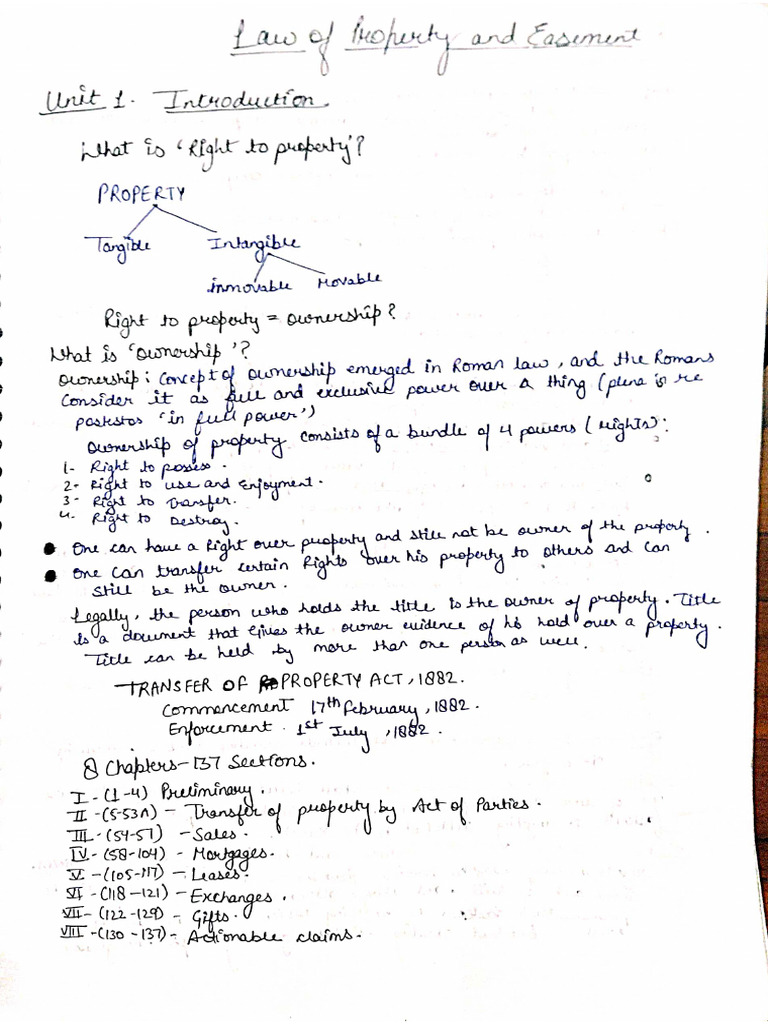 Law of Property and Easement
Unit 1. Introduction.
What is 'Right to property'?
PROPERTY
Tangible Intangible
immovable Movable
Right to property = ownership?
What is 'ownership'?
Ownership: Concept of ownership emerged in Roman law, and the Romans
Consider it as full and exclusive power over a thing (plena is re
postestos 'in full power')
Ownership of property consists of a bundle of 4 powers (Rights):
1- Right to possess.
2- Right to use and Enjoyment.
3- Right to Transfer.
4- Right to Destroy.
• One can have a Right over property and still not be owner of the property.
• One can transfer certain Rights over his property to others and can
still be the owner.
Legally, the person who holds the title is the owner of property. Title
is a document that gives the owner evidence of his hold over a property.
Title can be held by more than one person as well.
TRANSFER OF PROPERTY ACT, 1882.
Commencement 17th February, 1882.
Enforcement 1st July, 1882.
8 Chapters - 137 Sections.
I - (1-4) Preliminary.
II - (5-53A) - Transfer of property by Act of Parties.
III - (54-57) - Sales.
IV - (58-104) - Mortgages.
V - (105-117) - Leases.
VI - (118-121) - Exchanges.
VII - (122-129) - Gifts.
VIII - (130-137) - Actionable claims.